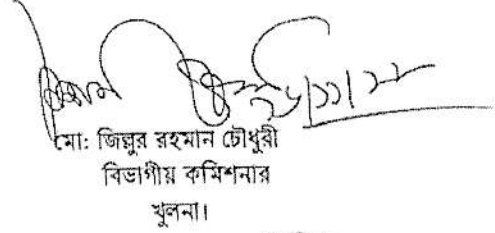 মো: জিল্লুর রহমান চৌধুরী
বিভাগীয় কমিশনার
খুলনা।